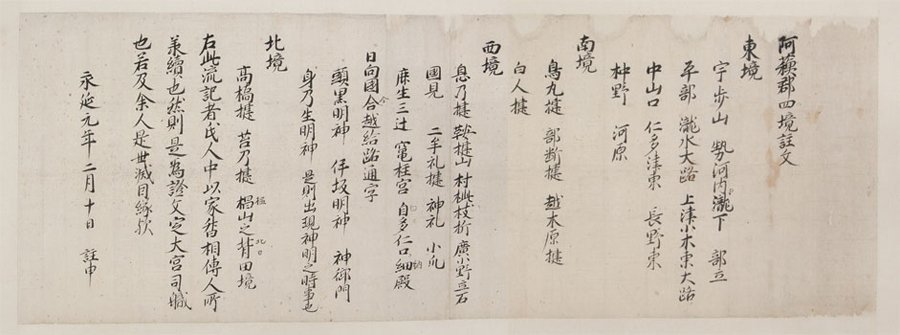 阿蘇郡四境註文
東境
宇歩山 勢河内瀧下 部立
平部 瀧水大路 上津小木東大路
中山口 仁多津東 長野東
仲野 河原
南境
鳥九揵 部断揵 越木原揵
白人揵
西境
息乃揵 鞍揵山 村杣枝折 廣小野立石
國見 二牟礼揵 神礼 小爪
麻生三辻 竃柱宮 自多仁口細殿
日向國合越給路通字
頭黒明神 伢坂明神 神御門
身乃生明神 是則出現神明之時事也
北境
高橋揵 苔乃揵 椙山之背田境
右此流記者氏人中以家督相傳人所
羕續也然則是為證文定大宮司職
也若及余人是世滅目縁歟
永延元年 二月十日 註申